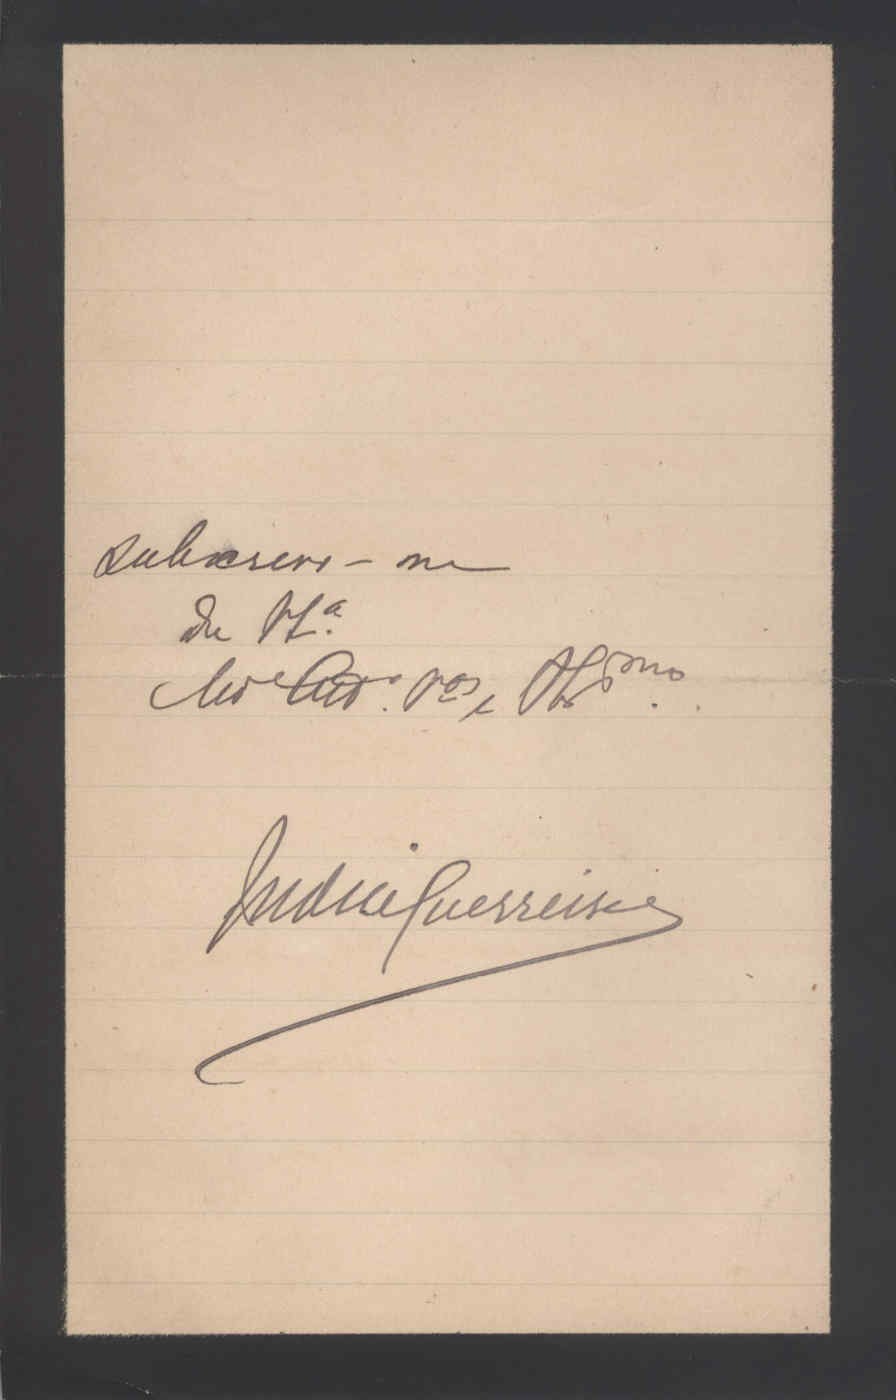 subscrevo-me
de V.ª
Mto Atto. Vor e Obgmo.
Judice Guerreiro